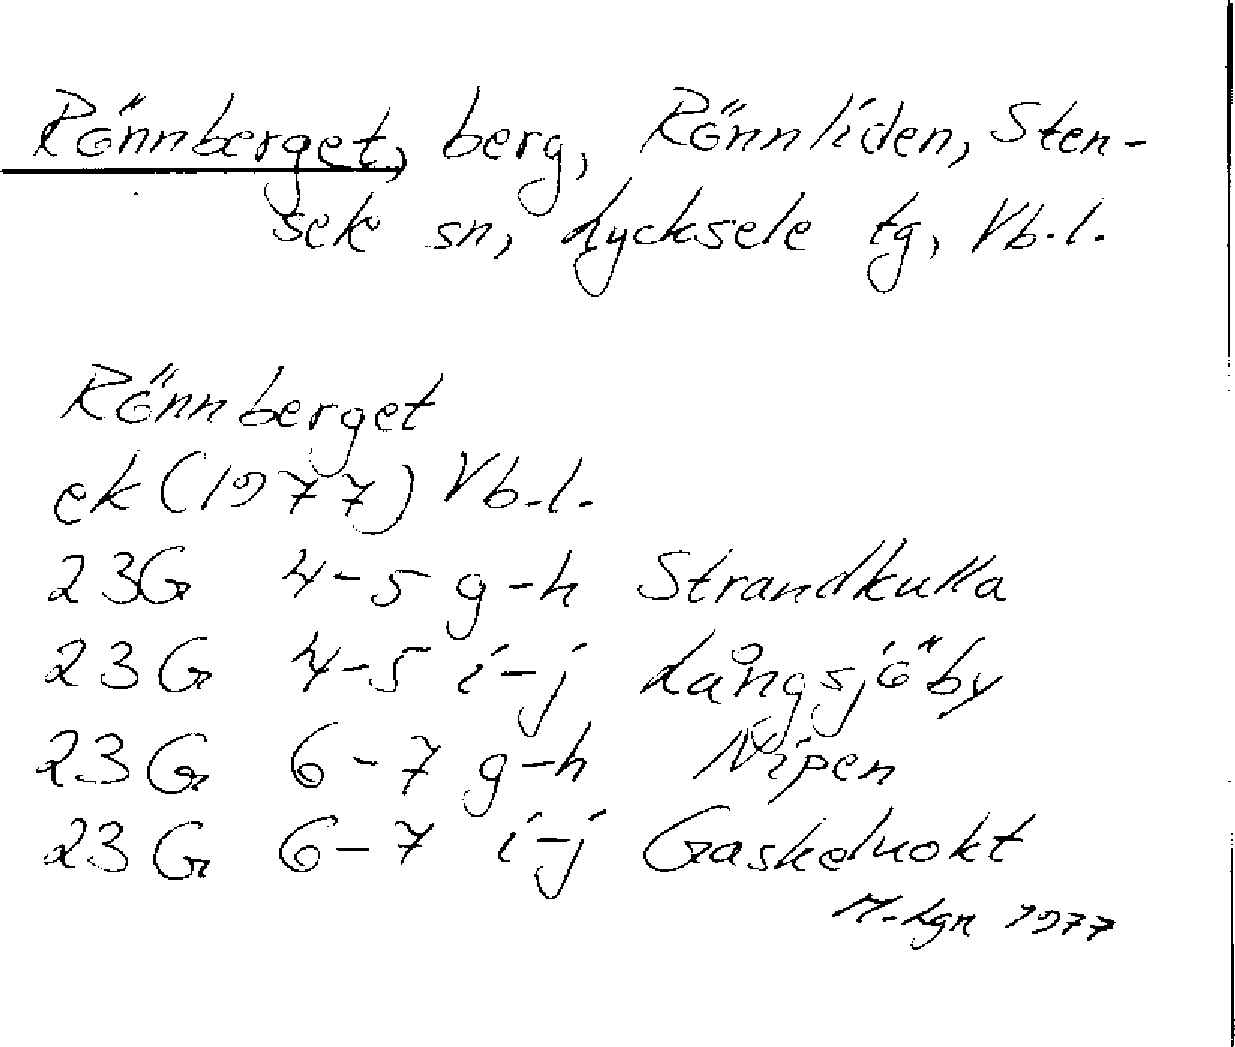 Rönnberget, berg, Rönnliden, Sten-
sele sn, Lycksele tg, Vb.l.
Rönnberget
ek (1977) Vb.l.
23G 4-5 g-h Strandkulla
23G 4-5 i-j Långsjöby
23G 6-7 g-h Nipen
23G 6-7 i-j Gaskeluokt
M.Lgn 1977